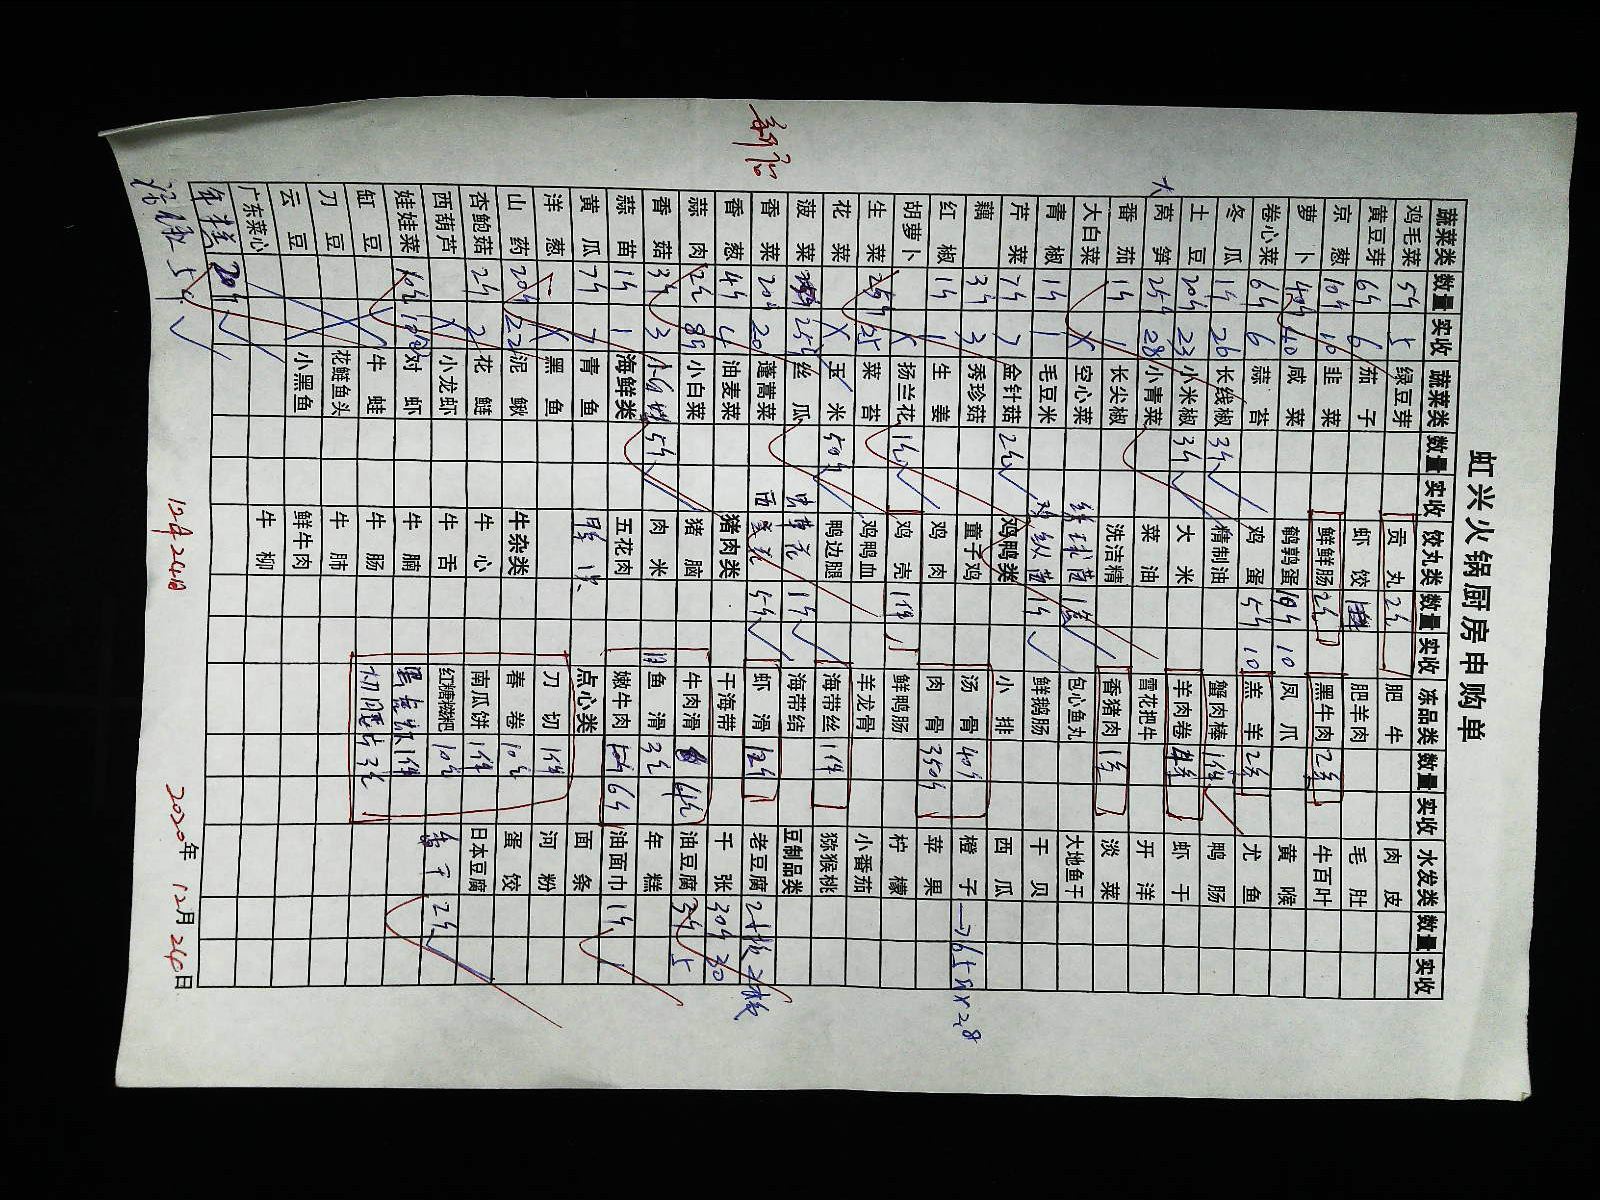 虹兴火锅厨房申购单
蔬菜类 数量 实收 蔬菜类 数量 实收 饺丸类 数量 实收 冻品类 数量 实收 水发类 数量 实收
鸡毛菜 5斤 5 绿豆芽 贡丸 2包 肥牛 肉皮
黄豆芽 6斤 6 茄子 虾饺 肥羊肉 毛肚
京葱 10斤 10 韭菜 鲜鲜肠 2包 黑牛肉 2条 牛百叶
萝卜 40斤 40 咸菜 鹌鹑蛋 10斤 10 凤爪 黄喉
卷心菜 6斤 6 蒜苔 鸡蛋 5斤 10 羔羊 2条 尤鱼
冬瓜 1斤 26 长线椒 3斤 精制油 蟹肉棒 1件 鸭肠
土豆 20斤 23 小米椒 3斤 大米 羊肉卷 虾干
大 莴笋 25斤 28 小青菜 菜油 雪花把牛 开洋
番茄 1斤 1 长尖椒 洗洁精 香猪肉 1条 淡菜
大白菜 X 空心菜 包心鱼丸 大地鱼干
青椒 1斤 1 毛豆米 鸡纵菌 1斤 鲜鹅肠 干贝
芹菜 7斤 7 金针菇 2包 鸡鸭类 小排 西瓜
藕 3斤 3 秀珍菇 童子鸡 汤骨 40斤 橙子 →65斤×2.8
红椒 1斤 1 生姜 鸡肉 肉骨 350斤 苹果
胡萝卜 X 扬兰花 1包 鸡壳 1件 鲜鸭肠 柠檬
生菜 25斤 25 菜苔 鸡鸭血 羊龙骨 小番茄
花菜 X 玉米 50斤 鸭边腿 海带丝 1件 猕猴桃
菠菜 25斤 丝瓜 1斤 海带结 豆制品类
香菜 20斤 20 蓬蒿菜 西兰花 5斤 虾滑 12斤 老豆腐 2板 2板
香葱 4斤 4 油麦菜 猪肉类 干海带 千张 30斤 30
蒜肉 2斤 小白菜 猪脑 牛肉滑 4包 油豆腐 5
香菇 3斤 3 5斤 肉米 鱼滑 3包 年糕
蒜苗 1斤 1 海鲜类 五花肉 嫩牛肉 6斤 油面巾 1斤
黄瓜 7斤 7 青鱼 点心类 面条
洋葱 X 黑鱼 刀切 1件 河粉
山药 20斤 22 泥鳅 牛杂类 春卷 10包 蛋饺
杏鲍菇 2斤 2 花鲢 牛心 南瓜饼 1件 日本豆腐
西葫芦 X 小龙虾 牛舌 红糖糍粑 10包 香干 2斤
娃娃菜 10包 对虾 牛腩 1件
缸豆 牛蛙 牛肠 3包
刀豆 花鲢鱼头 牛肺
云豆 小黑鱼 鲜牛肉
广东菜心 牛柳
年糕 20斤
5斤
12月24日 2020年 12月 24日